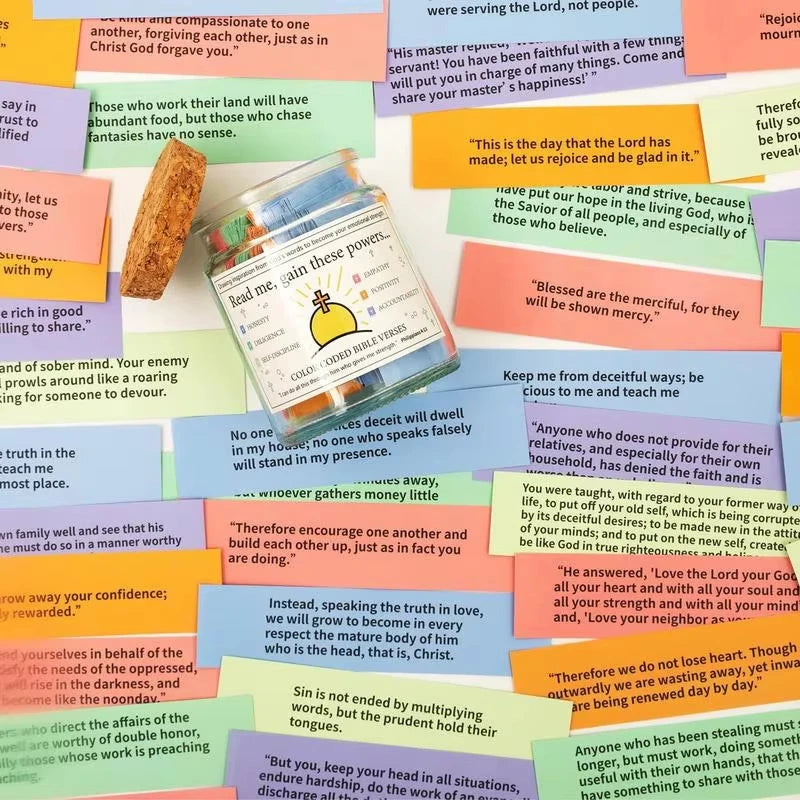 Be kind and compassionate to one
another, forgiving each other, just as in
Christ God forgave you.”
were serving the Lord, not people.
“Rejoic
mourn
“His master replied,
servant! You have been faithful with a few things
will put you in charge of many things. Come and
share your master’s happiness!’ ”
say in
rust to
lified
Those who work their land will have
abundant food, but those who chase
fantasies have no sense.
“This is the day that the Lord has
made; let us rejoice and be glad in it.”
Therefo
fully so
be bro
reveale
nity, let us
to those
vers.”
labor and strive, because
have put our hope in the living God, who is
the Savior of all people, and especially of
those who believe.
with my
e rich in good
illing to share.”
Drawing inspiration from God's words to become your emotional strength
Read me, gain these powers...
HONESTY
DILIGENCE
SELF-DISCIPLINE
EMPATHY
POSITIVITY
ACCOUNTABILITY
COLOR-CODED BIBLE VERSES
"I can do all this through him who gives me strength." Philippians 4:13
“Blessed are the merciful, for they
will be shown mercy.”
and of sober mind. Your enemy
l prowls around like a roaring
king for someone to devour.
Keep me from deceitful ways; be
cious to me and teach me
No one
ices deceit will dwell
in my house; no one who speaks falsely
will stand in my presence.
“Anyone who does not provide for their
relatives, and especially for their own
household, has denied the faith and is
e truth in the
teach me
most place.
away,
but whoever gathers money little
You were taught, with regard to your former way o
life, to put off your old self, which is being corrupte
by its deceitful desires; to be made new in the attitu
of your minds; and to put on the new self, create
be like God in true righteousness and
wn family well and see that his
he must do so in a manner worthy
“Therefore encourage one another and
build each other up, just as in fact you
are doing.”
“He answered, 'Love the Lord your God
all your heart and with all your soul and
all your strength and with all your mind
and, 'Love your neighbor as
row away your confidence;
ly rewarded.”
Instead, speaking the truth in love,
we will grow to become in every
respect the mature body of him
who is the head, that is, Christ.
nd yourselves in behalf of the
isfy the needs of the oppressed,
will rise in the darkness, and
become like the noonday.”
“Therefore we do not lose heart. Though
outwardly we are wasting away, yet inwa
are being renewed day by day.”
Sin is not ended by multiplying
words, but the prudent hold their
tongues.
ers who direct the affairs of the
well are worthy of double honor,
lly those whose work is preaching
aching.
“But you, keep your head in all situations,
endure hardship, do the work of an
discharge all the
Anyone who has been stealing must s
longer, but must work, doing someth
useful with their own hands, that th
have something to share with those